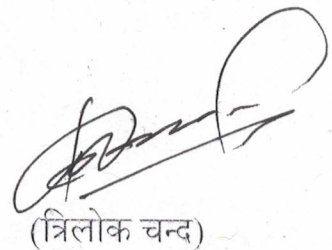 (त्रिलोक चन्द)